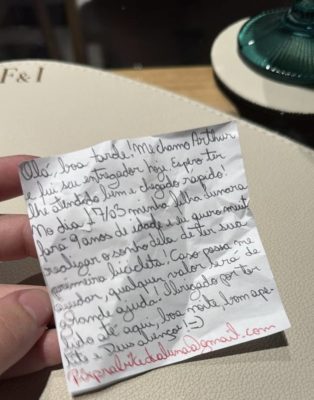 F&I
Olá, boa tarde! Me chamo Arthur
e fui seu entregador hoje. Espero ter
lhe atendido bem e chegado rápido!
No dia 17/03 minha filha Lunara
fará 9 anos de idade e eu quero muito
realizar o sonho dela de ter sua
primeira bicicleta! Caso possa me
ajudar, qualquer valor será de
grande ajuda! Obrigado por ter
lido até aqui, boa noite, bom ape-
tite e Deus abençoe! =)